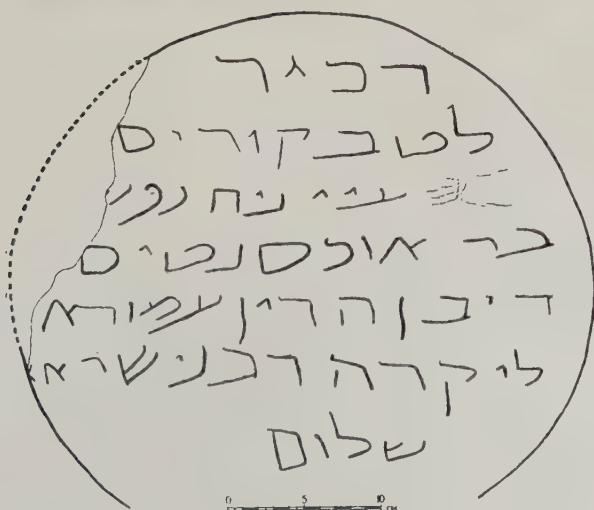 דכיר
לטב קוריס
ניח נפש
בר אוכסנטיס
דזבן הדין עמודא
ליקרה דכנישתא
שלום
0 5 10 CM